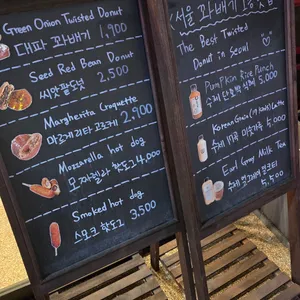 Green Onion Twisted Donut
대파 꽈배기 1,900
Seed Red Bean Donut
씨앗팥도넛 2,500
Margherita Croquette
마르게리타 고로케 2,900
Mozzarella hot dog
모짜렐라 핫도그 4,000
Smoked hot dog
스모크 핫도그 3,500
서울 꽈배기
The Best Twisted
Donut in Seoul
Pumpkin Rice Punch
수제 단호박 식혜 5,000
Korean Grain
수제
5,000
Earl Grey Milk Tea
수제 얼그레이 밀크티
5,500